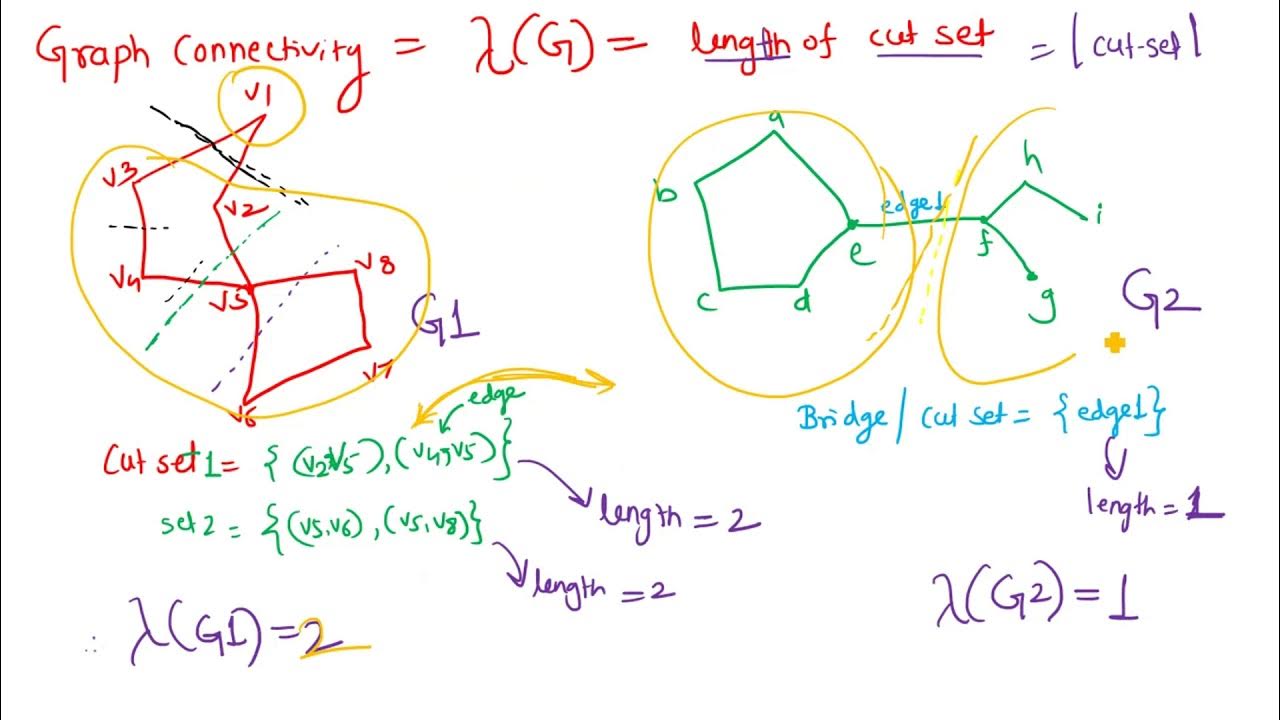 Graph Connectivity = λ(G) = length of cut set = |cut-set|
v1
v3
v2
v4
v5
v8
v7
v6
G1
a
b
c
d
e
edge1
f
h
i
g
G2
edge
Cut set1 = {(v2,v5),(v4,v5)}
length = 2
set2 = {(v5,v6),(v5,v8)}
length = 2
∴ λ(G1) = 2
Bridge/cut set = {edge1}
length = 1
λ(G2) = 1